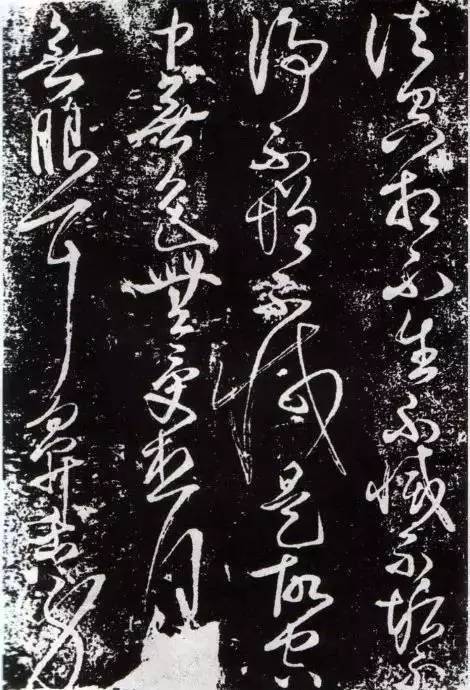 法空相不生不滅不垢不
淨不增不減是故空
中無色無受想行
無眼耳鼻舌身